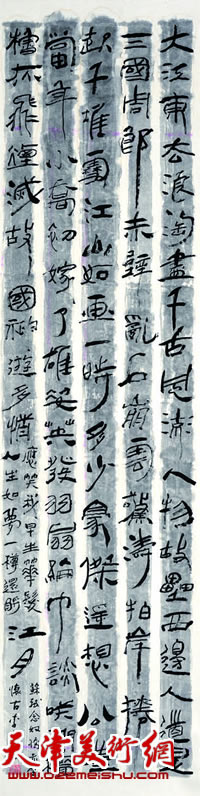 大江東去浪淘盡千古風流人物故壘西邊人道是
三國周郎赤壁亂石崩雲驚濤拍岸捲
起千堆雪江山如畫一時多少豪傑遙想公瑾
當年小喬初嫁了雄姿英發羽扇綸巾談笑間檣
櫓灰飛煙滅故國神遊多情
應笑我早生華髮
人生如夢一樽還酹
江月
蘇軾念奴嬌赤壁
懷古
天津美術網
www.ozemeishu.com